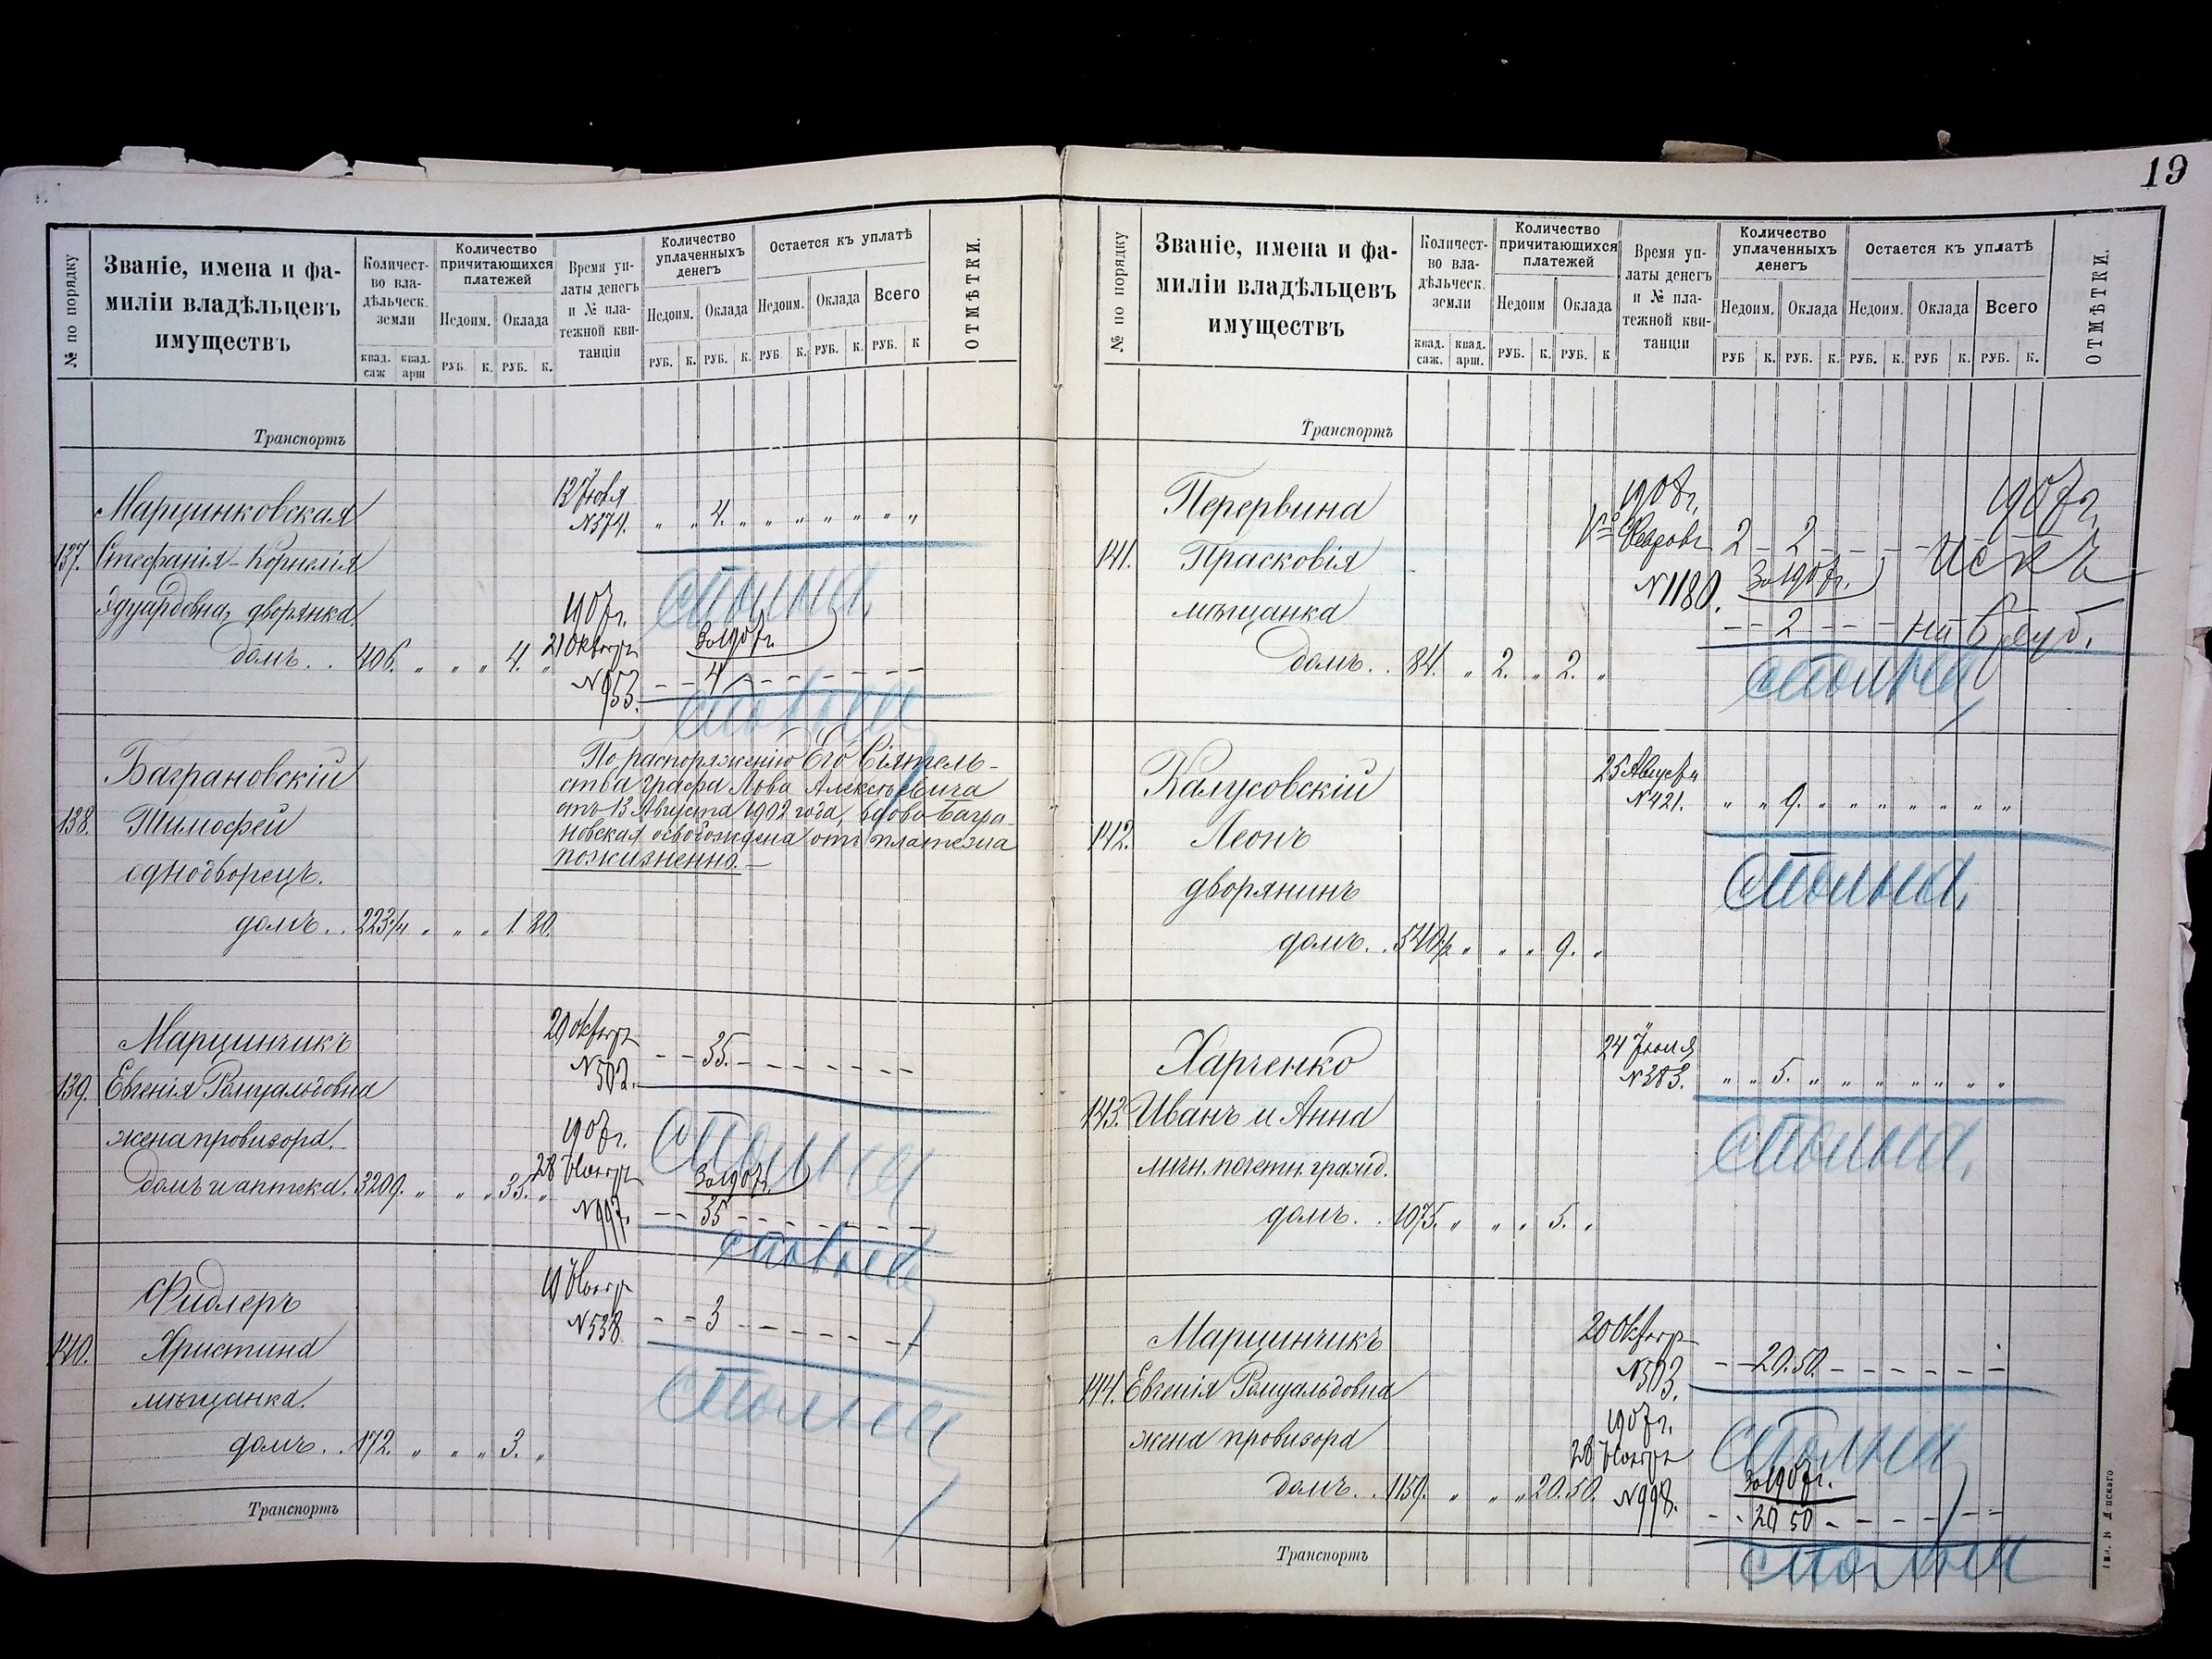 19
№ по порядку
Званіе, имена и фа-
миліи владѣльцевъ
имуществъ
Количест-
во вла-
дѣльческ.
земли
квад. саж квад. арш
Количество
причитающихся
платежей
Недоим. Оклада
РУБ. К. РУБ. К.
Время уп-
латы денегъ
и № пла-
тежной кви-
танціи
Количество
уплаченныхъ
денегъ
Недоим. Оклада
РУБ. К. РУБ. К.
Остается къ уплатѣ
Недоим. Оклада Всего
РУБ К. РУБ. К. РУБ. К
ОТМѢТКИ.
Транспортъ
Марцинковская
137. Стефанія-Корнелія
Эдуардовна, дворянка.
домъ. . 406. „ „ „ 4. „
12 Іюля
№374. „ „ 4. „ „ „ „ „ „ „
1907г.
21 Октяр
№953.
За 1907г.
- - 4 - - - - - -
Баграновскій
138. Тимофей
однодворецъ.
домъ. . 223¼ „ „ „ 1 80.
По распоряженію Его Сіятель-
ства Графа Льва Алексѣевича
отъ 13 Августа 1902 года, вдова Багра-
новская освобождена отъ платежа
пожизненно. —
Марцинчикъ
139. Евгенія Ромуальдовна
жена провизора.
домъ и аптека. 3209. „ „ „ 35. „
20 Октяр
№502. - - 35. - - - - - -
1907г.
28 Ноябр
№997.
За 1907г.
- - 35 - - - - - -
Фидлеръ
140. Христина
мѣщанка.
домъ. . 172. „ „ „ 3. „
19 Ноябр
№538. - - 3 - - - - - -
Транспортъ
№ по порядку
Званіе, имена и фа-
миліи владѣльцевъ
имуществъ
Количест-
во вла-
дѣльческ.
земли
квад. саж. квад. арш.
Количество
причитающихся
платежей
Недоим Оклада
РУБ. К. РУБ. К
Время уп-
латы денегъ
и № пла-
тежной кви-
танціи
Количество
уплаченныхъ
денегъ
Недоим. Оклада
РУБ К. РУБ. К.
Остается къ уплатѣ
Недоим. Оклада Всего
РУБ. К. РУБ К. РУБ. К.
ОТМѢТКИ.
Транспортъ
Перервина
141. Прасковія
мѣщанка
домъ. . 84. „ 2. „ 2. „
1908г.
№1180.
2 - 2 - - -
За 1907г.
- - 2 - - -
1907г.
искъ
на 6 руб.
Калусовскій
142. Леонъ
дворянинъ
домъ. . 540½ „ „ „ 9. „
25 Августа
№421. „ „ 9. „ „ „ „ „ „ „
Харченко
143. Иванъ и Анна
личн. почетн. гражд.
домъ. . 1075. „ „ „ 5. „
24 Іюля
№383. „ „ 5. „ „ „ „ „ „ „
Марцинчикъ
144. Евгенія Ромуальдовна
жена провизора
домъ. . 1159. „ „ „ 20. 50.
20 Октяр
№503. - - 20. 50. - - - - - -
1907г.
28 Ноябр
№998.
За 1907г.
- - 20 50 - - - - - -
Транспортъ